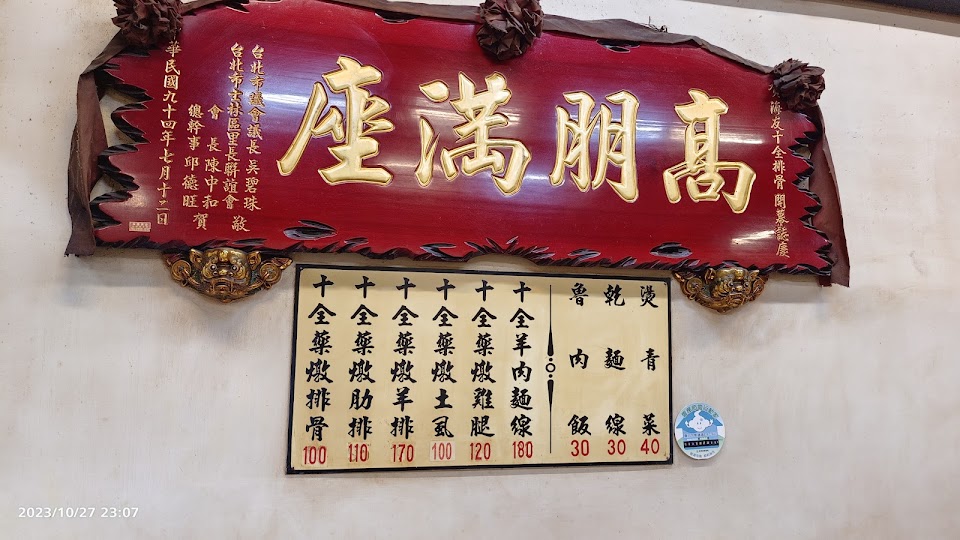 海友十全排骨 開幕誌慶
高朋滿座
台北市議會議長 吳碧珠
台北市士林區里長聯誼會 敬
會長 陳中和
總幹事 邱德旺 賀
華民國九十四年七月十二日
燙青菜 40
乾麵線 30
魯肉飯 30
十全羊肉麵線 180
十全藥燉雞腿 120
十全藥燉土虱 100
十全藥燉羊排 170
十全藥燉肋排 110
十全藥燉排骨 100
2023/10/27 23:07